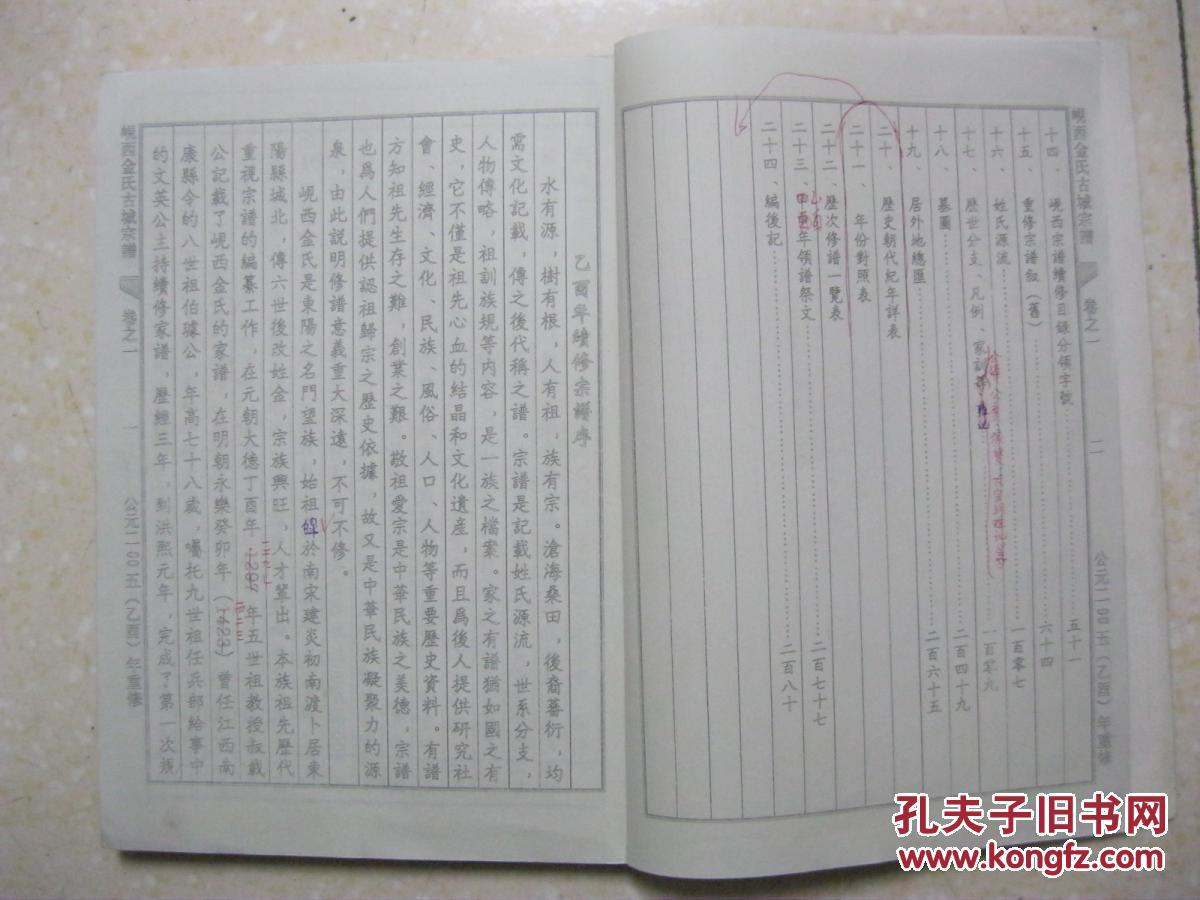 峴西金氏古城宗譜
卷之一
二
公元二00五(乙酉)年重修
十四、峴西宗譜續修目録分領字號……五十一
十五、重修宗譜叙(舊)……六十四
十六、姓氏源流……一百零七
十七、歷世分支、凡例、家訓……一百零九
十八、墓圖……二百四十九
十九、居外地總匯……二百六十五
二十、歷史朝代紀年詳表
二十一、年份對照表
二十二、歷次修譜一覽表
二十三、年領譜祭文……二百七十七
二十四、編後記……二百八十
乙酉年續修宗譜序
水有源，樹有根，人有祖，族有宗。滄海桑田，後裔蕃衍，均
需文化記載，傳之後代稱之譜。宗譜是記載姓氏源流，世系分支，
人物傳略，祖訓族規等内容，是一族之檔案。家之有譜猶如國之有
史，它不僅是祖先心血的結晶和文化遺産，而且爲後人提供研究社
會、經濟、文化、民族、風俗、人口、人物等重要歷史資料。有譜
方知祖先生存之難，創業之艱。敬祖愛宗是中華民族之美德，宗譜
也爲人們提供認祖歸宗之歷史依據，故又是中華民族凝聚力的源
泉，由此説明修譜意義重大深遠，不可不修。
峴西金氏是東陽之名門望族，始祖於南宋建炎初南渡卜居東
陽縣城北，傳六世後改姓金，宗族興旺，人才輩出。本族祖先歷代
重視宗譜的編纂工作，在元朝大德丁酉年·1297年五世祖教授叔載
公記載了峴西金氏的家譜，在明朝永樂癸卯年(1423)曾任江西南
康縣令的八世祖伯璩公，年高七十八歲，囑托九世祖任兵部給事中
的文英公主持續修家譜，歷經三年，到洪熙元年，完成了第一次規
峴西金氏古城宗譜
卷之一
一
公元二00五(乙酉)年重修
孔夫子旧书网
www.kongfz.com